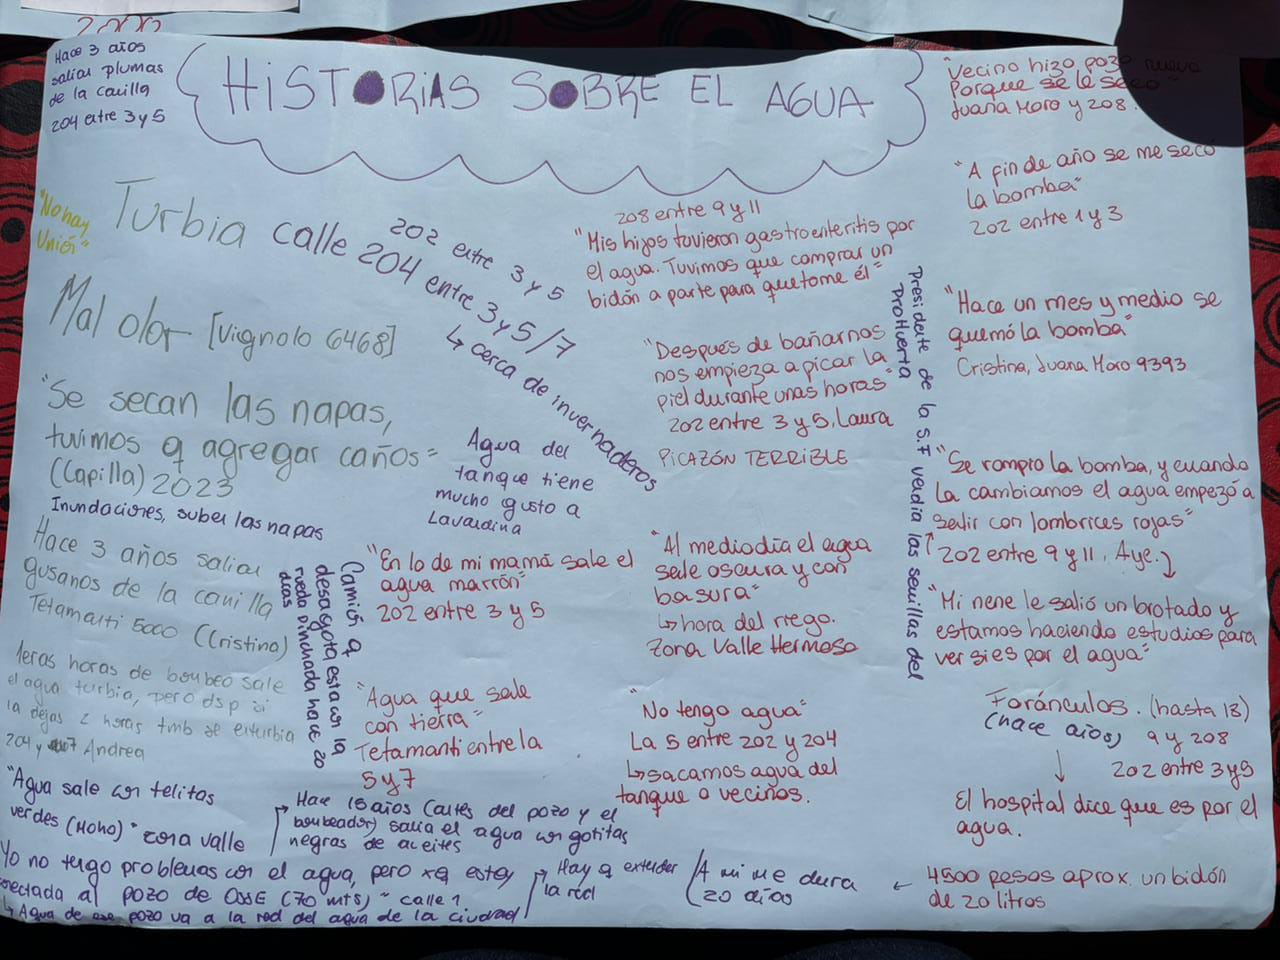 2000
Hace 3 años
salían plumas
de la canilla
204 entre 3 y 5
HISTORIAS SOBRE EL AGUA
"Vecino hizo pozo nuevo
Porque se le seco"
Juana Moro y 208.
"A fin de año se me secó
la bomba"
202 entre 1 y 3
"No hay
Unión"
Turbia calle 204 entre 3 y 5/7
202 entre 3 y 5
↳ cerca de invernaderos
208 entre 9 y 11
"Mis hijos tuvieron gastroenteritis por
el agua. Tuvimos que comprar un
bidón a parte para que tome él"
Mal olor [Vignolo 6468]
"Hace un mes y medio se
quemó la bomba"
Cristina, Juana Moro 9393
"Después de bañarnos
nos empieza a picar la
piel durante unas horas"
202 entre 3 y 5, Laura
PICAZÓN TERRIBLE
Presidente de la S.F vendía las semillas del
ProHuerta
"Se secan las napas,
tuvimos q agregar caños"
(Capilla) 2023
Inundaciones, suben las napas
Agua del
tanque tiene
mucho gusto a
Lavandina
"Se rompio la bomba, y cuando
La cambiamos el agua empezó a
salir con lombrices rojas"
202 entre 9 y 11. Aye.
"Mi nene le salió un brotado y
estamos haciendo estudios para
ver si es por el agua"
Hace 3 años salían
gusanos de la canilla
Tetamanti 5000 (Cristina)
Camión q
desagota esta con la
rueda pinchada hace 20
días
"En lo de mi mamá sale el
agua marrón"
202 entre 3 y 5
"Al mediodía el agua
sale oscura y con
basura"
↳ hora del riego.
Zona Valle Hermoso
1eras horas de bombeo sale
el agua turbia, pero dsp si
la dejas 2 horas tmb se enturbia
204 y 7 Andrea
"Agua que sale
con tierra"
Tetamanti entre la
5 y 7
"No tengo agua"
La 5 entre 202 y 204
↳ sacamos agua del
tanque o vecinos.
Foránculos. (hasta 13)
(hace años) 9 y 208
202 entre 3 y 5
El hospital dice que es por el
agua.
"Agua sale con telitas
verdes (Moho)" zona valle
Hace 15 años (antes del pozo y el
bombeador) salía el agua con gotitas
negras de aceites
Yo no tengo problemas con el agua, pero xq estoy
conectada al pozo de OSSE (70 mts)" calle 1
↳ Agua de ese pozo va a la red del agua de la ciudad
→ Hay q extender
la red
A mi me dura
20 días
← 4500 pesos aprox. un bidón
de 20 litros